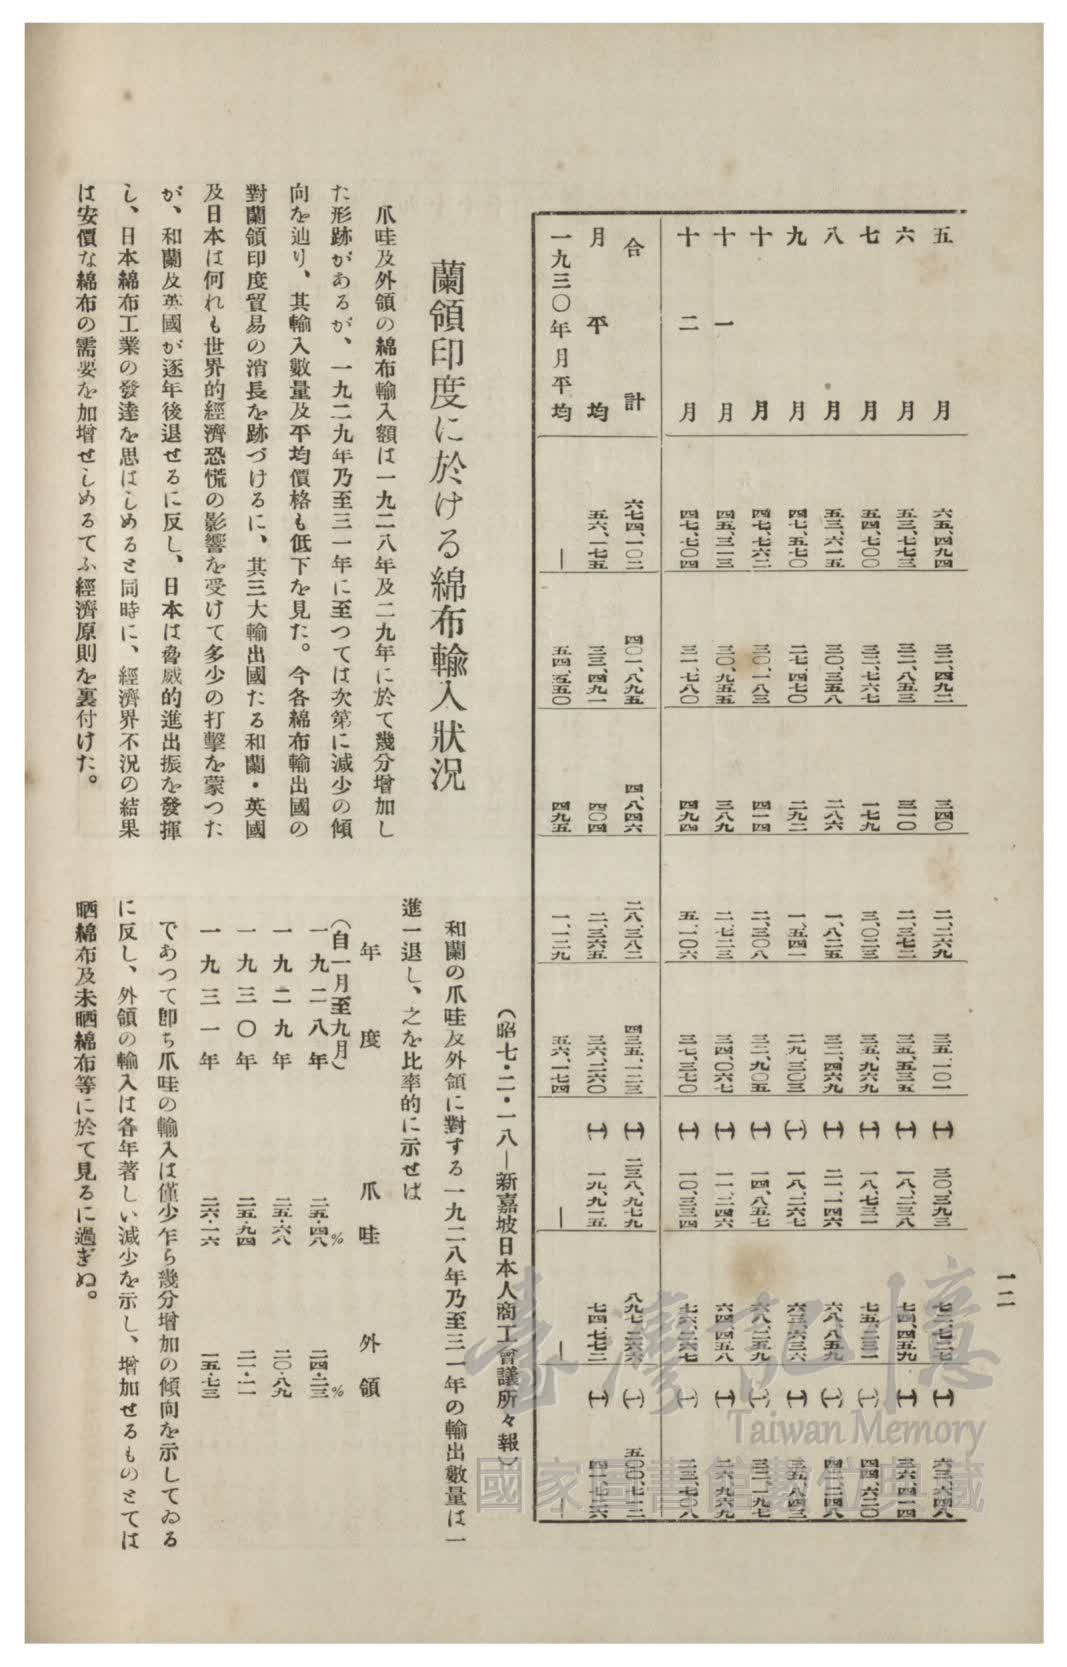 一二
五月 六五、四九四 三二、四九二 三四〇 二、二六九 三五、一〇一 (一) 三〇、三九三 七二、七二七 (一) 六三、六四八
六月 五三、七七三 三二、八五三 三一〇 二、三七二 三五、五三五 (一) 一八、二三八 七四、四五九 (一) 三六、四一四
七月 五四、七〇〇 三二、七六七 一七九 三、〇二三 三五、九六九 (一) 一八、七三一 七五、二三一 (一) 四四、六二〇
八月 五三、六一五 三〇、三五八 二八六 一、八二五 三二、四六九 (一) 二一、一四六 六八、八五九 (一) 四三、二四八
九月 四七、五七〇 二七、四七〇 二九二 一、五四一 二九、三〇三 (一) 一八、二六七 六三、六三六 (一) 三五、八四三
十月 四七、七六二 三〇、一八三 四一四 二、三〇八 三二、九〇五 (一) 一四、八五七 六八、二五九 (一) 三二、一九七
十一月 四五、三一三 三〇、九五五 三八九 二、七二三 三四、〇六七 (一) 一一、二四六 六四、四五八 (一) 二六、九六九
十二月 四七、七〇四 三一、七八〇 四九四 五、一〇六 三七、三七〇 (一) 一〇、三三四 七六、二六七 (一) 二三、七〇八
合計 六七四、一〇二 四〇一、八九五 四、八四六 二八、三八二 四三五、一二三 (一) 二三八、九七九 八九七、二六六 (一) 五〇〇、七一二
月平均 五六、一七五 三三、四九一 四〇四 二、三六五 三六、二六〇 (一) 一九、九一五 七四、七七二 (一) 四一、七二六
一九三〇年月平均 — 五四、五五〇 四九五 一、一二九 五六、一七四 — — —
(昭七・二・一八—新嘉坡日本人商工會議所々報)
蘭領印度に於ける綿布輸入狀況
爪哇及外領の綿布輸入額は一九二八年及二九年に於て幾分增加し
た形跡があるが、一九二九年乃至三一年に至つては次第に減少の傾
向を辿り、其輸入數量及平均價格も低下を見た。今各綿布輸出國の
對蘭領印度貿易の消長を跡づけるに、其三大輸出國たる和蘭・英國
及日本は何れも世界的經濟恐慌の影響を受けて多少の打擊を蒙つた
が、和蘭及英國が逐年後退せるに反し、日本は脅威的進出振を發揮
し、日本綿布工業の發達を思はしめると同時に、經濟界不況の結果
は安價な綿布の需要を加增せしめるてふ經濟原則を裏付けた。
和蘭の爪哇及外領に對する一九二八年乃至三一年の輸出數量は一
進一退し、之を比率的に示せば
年度 爪哇 外領
(自一月至九月) % %
一九二八年 二五・四八 二四・二三
一九二九年 二五・六八 二〇・八九
一九三〇年 二五・九四 二一・二一
一九三一年 二六・一六 一五・七三
であつて卽ち爪哇の輸入は僅少乍ら幾分增加の傾向を示してゐる
に反し、外領の輸入は各年著しい減少を示し、增加せるものとては
晒綿布及未晒綿布等に於て見るに過ぎぬ。
臺灣記憶
Taiwan Memory
國家圖書館數位典藏